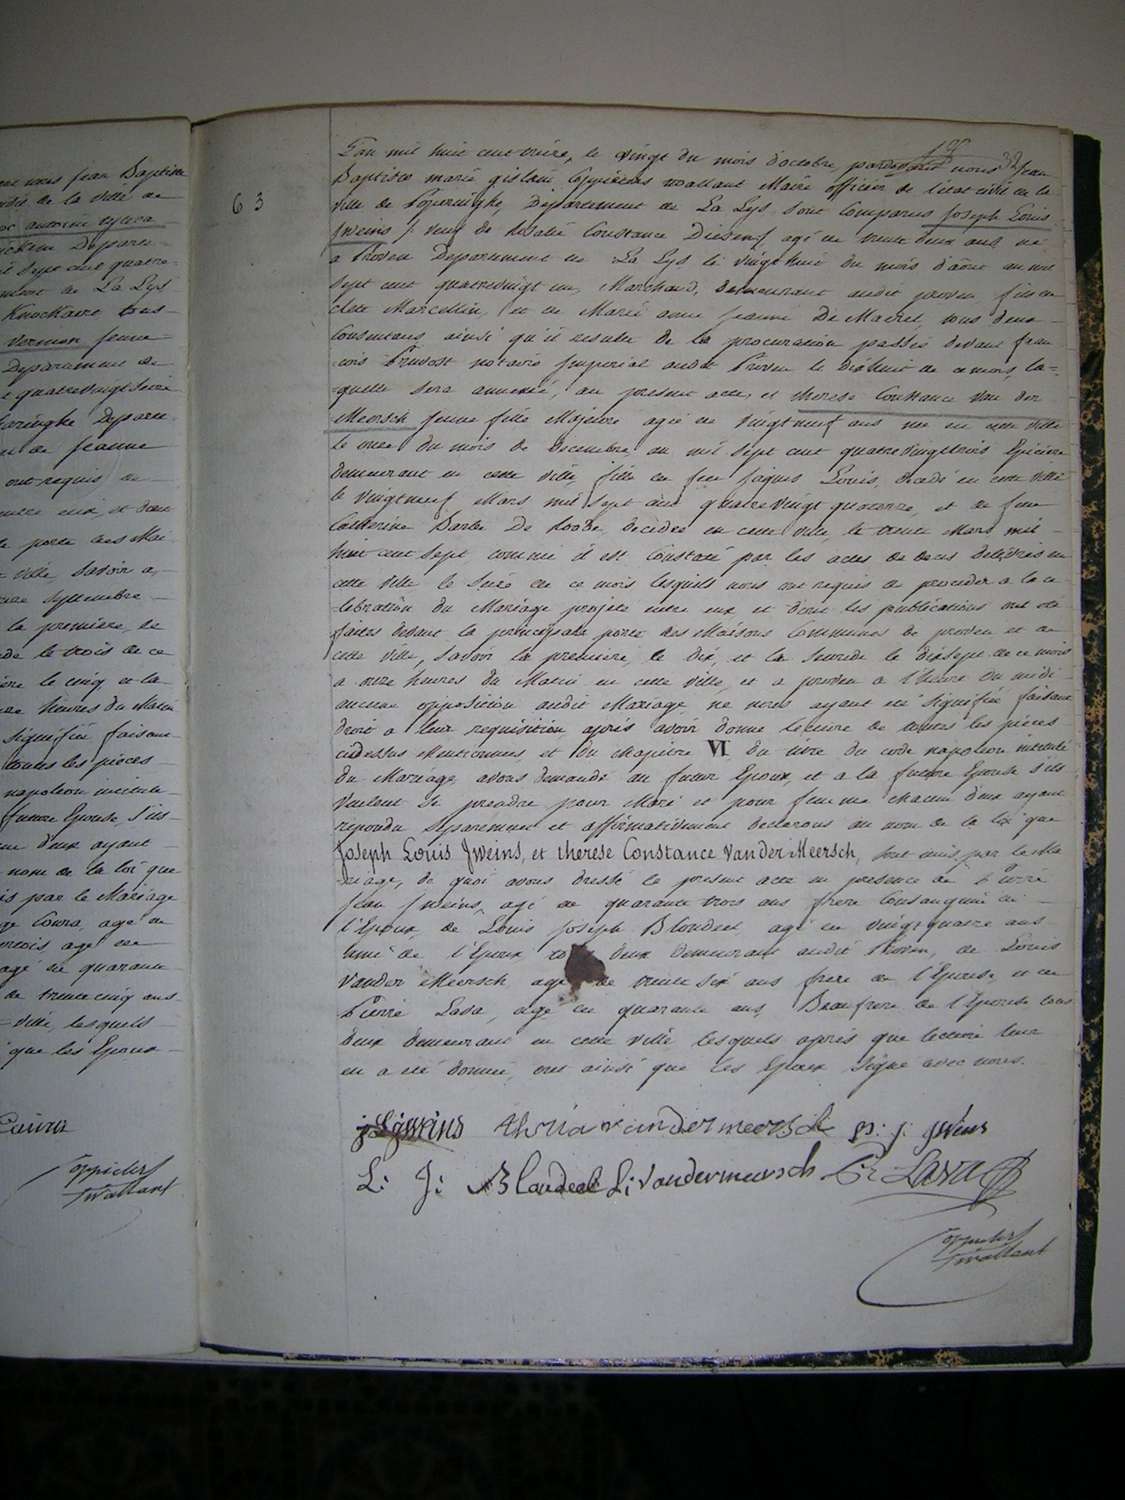 me nous jean Baptiste
de la ville de
sept cent quatre-
ment de La Lys
tous-
Vermon jeune
Departement de
quatrevingt seize
aringhe Departe-
de jeanne
ont requis de
entre eux, et dont
porte des Mai
ville, Savoir a
Septembre
la premiere, le
de le trois de ce
le cinq et la
heures du Matin
signifiée faisant
toutes les pièces
napoleon intitulé
future Epouse, s'ils
eux ayant
nom de la loi que
is par le Mariage
agé de
agé de
agé de quarante
de trente cinq ans
ville, lesquels
que les Epoux
Coppieters
t'wallant
63
19
32
L'an mil huit cent treize, le vingt du mois d'octobre, pardevant nous Jean
Baptiste marie gislain Coppieters t'wallant Maire officier de l'état civil de la
ville de Poperinghe, Departement de La Lys, sont Comparus Joseph Louis
Jweins / veuf de Rosalie Constance agé de trente deux ans, né
a Proven Departement de La Lys le vingt huit du mois d'août an mil
sept cent quatrevingt un, Marchand, demeurant audit proven, fils de
Marcellin, et de Marie anne jeanne De Macrel, tous deux
Consentans ainsi qu'il resulte de la procuration passée devant fran
-cois Pruvost notaire Imperial audit Proven le dixhuit de ce mois, la-
-quelle sera annexée, au present acte, et therese Constance Van der
Meersch jeune fille Majeure agée de vingtneuf ans née en cette ville
le onze du mois de Decembre an mil sept cent quatrevingttrois Epiciere
demeurant en cette ville, fille de feu jaques Louis, décédé en cette ville
le vingtneuf Mars mil sept cent quatrevingt quatorze, et de feue
Catherine Barbe De Roode décédée en cette ville, le trente Mars mil-
huit cent sept comme il est Constaté par les actes de deces delivrés en
cette ville le seize de ce mois lesquels nous ont requis de proceder a la ce-
-lebration du Mariage projeté entre eux et dont les publications ont été
faites devant la principale porte des Maisons Communes de proven et de
cette ville, Savoir la premiere, le dix, et la seconde le dixsept de ce mois
a onze heures du Matin en cette ville, et a proven a l'heure du midi
aucune opposition audit Mariage ne nous ayant été signifiée faisant
droit a leur requisition après avoir donné lecture de toutes les pièces
cidessus Mentionnées et du chapitre VI du titre du code napoléon intitulé
Du Mariage, avons demandé au futur Epoux, et a la future Epouse s'ils
Veulent se prendre pour Mari et pour femme chacun d'eux ayant
repondu Separement et affirmativement declarons au nom de la loi que
Joseph Louis Jweins, et therese Constance Van der Meersch, sont unis par le Ma
-riage, de quoi avons dressé le present acte en presence de Pierre
Jean Jweins agé de quarante trois ans frere Consanguin de
l'Epoux de Louis Joseph Blondeel agé de vingtquatre ans
ami de l'Epoux deux demeurant audit Proven, de Louis
Vander Meersch agé de trente six ans frere de l'Epouse et de
Pierre Lava, agé de quarante ans, Beaufrere de l'Epouse tous
deux demeurant en cette ville, lesquels après que lecture leur
en a été donnée, ont ainsi que les Epoux signé avec nous.
jL jweins theresia vandermeersch p: j: jweins
L: J: Blondeel L: vandermeersch P: Lava
Coppieters
t'wallant